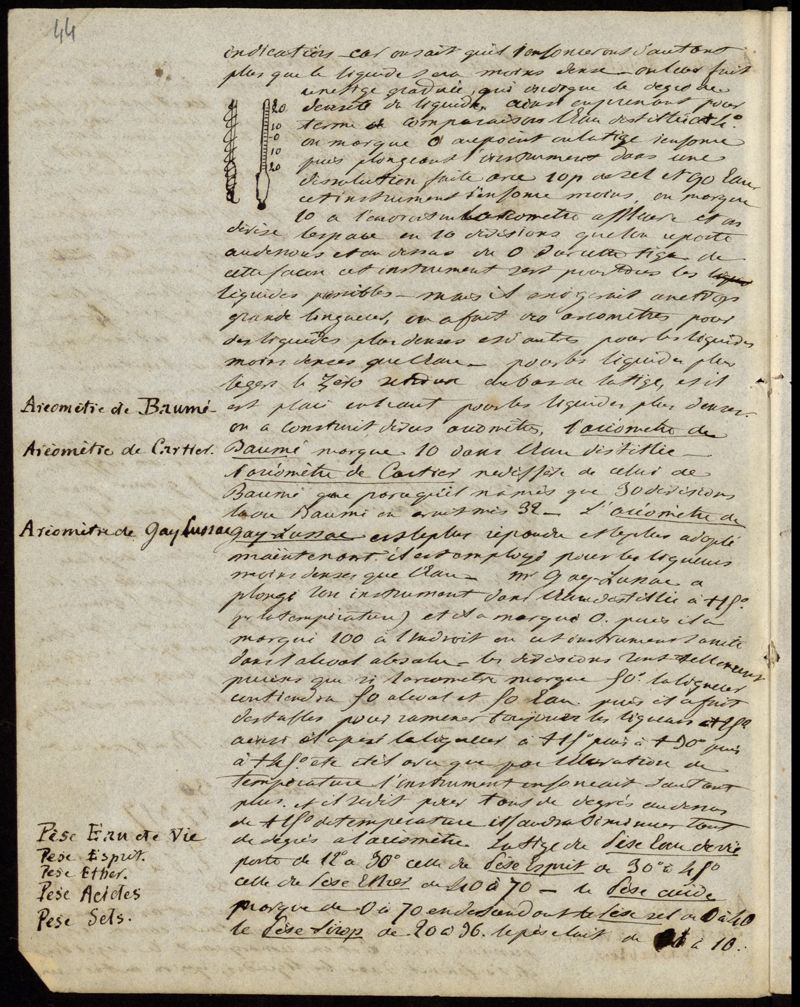 44
indications car on sait qu'il s'enfoncera d'autant
plus que le liquide sera moins dense on leur fait
une tige graduée, qui marque le degré de
densité du liquide. ainsi en prenant pour
terme de comparaison l'Eau distillée à +4°
on marque 0 au point ou la tige s'enfonce
puis plongeant l'instrument dans une
dissolution faite avec 10p de sel et 90 Eau
cet instrument s'enfonce moins, on marque
10 à l'endroit ou l'aréomètre affleure et on
divise l'espace en 10 divisions que l'on reporte
au dessous et au dessus du 0 sur cette tige de
cette façon cet instrument sert pour tous les
liquides possibles mais il exigerait une trop
grande longueur, on a fait des aréomètres pour
des liquides plus denses et d'autres pour les liquides
moins denses que l'Eau pour les liquides plus
legers le Zéro au bas de la tige, et il
est placé en haut pour les liquides plus denses
on a construit divers aréomètres, l'aréomètre de
Baumé marque 10 dans l'Eau distillée
l'aréomètre de Cartier ne diffère de celui de
Baumé que parce qu'il n'a mis que 30 divisions
la ou Baumé en avait mis 32 L'aréomètre de
Gay-Lussac est le plus répandu et le plus adopté
maintenant. il est employé pour les liqueurs
moins denses que l'Eau Mr Gay-Lussac a
plongé son instrument dans l'Eau distillée à +15°
température) et il a marqué 0. puis il a
marqué 100 à l'endroit ou cet instrument
dans l'alcool absolu les divisions sont tellement
que si l'aréomètre marque 50° la liqueur
contiendra 50 alcool et 50 Eau puis il a fait
des tables pour ramener toujours les liqueurs à +15°
ainsi il a pesé la liqueur à +15° puis à +30° puis
à +45° etc et il a vu que par l'élévation de
température l'instrument enfoncait d'autant
plus. et il se dit pour tant de degrés au dessus
de +15° de température il faudra diminuer tant
de degrés a l'aréomètre La tige du Pèse Eau de vie
porte de 12° à 30° celle du Pèse Esprit de 30° à 45°
celle du Pèse Ether de 40 à 70 le Pèse acide
marque de 0 à 70 en descendant le Pèse sel de 0 à 40
le Pèse Sirop de 20 à 36. le pèse lait de à 10.
20
10
0
10
20
Aréomètre de Baumé
Aréomètre de Cartier.
Aréomètre de Gay Lussac
Pèse Eau de Vie
Pèse Esprit.
Pèse Ether.
Pèse Acides
Pèse Sels.